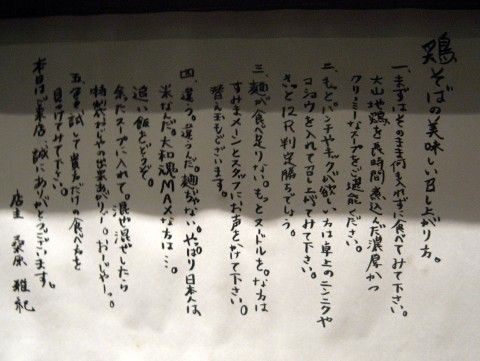 鶏そばの美味しい召し上がり方。
一、まずはそのまま何も入れずに食べてみて下さい。
大山地鶏を長時間煮込んだ濃厚かつ
クリーミーなスープをご堪能ください。
二、もっとパンチやキックが欲しい方は卓上のニンニクや
コショウを入れて召し上がってみて下さい。
きっと12R判定勝ちでしょう。
三、麺が食べ足りない。もっとヌードルを。な方は
すみまメーンとスタッフにお声をかけて下さい。
替え玉もございます。
四、違う。違うんだ。麺じゃない。やっぱり日本人は
米なんだ。大和魂MAXな方は…。
追い飯をどうぞ。
余ったスープに入れて。混ぜ混ぜしたら
特製おじやの出来あがりー。おーいぇーっ。
五、全てを試して貴方だけの食べ方を
見つけてみて下さい。
本日はご来店、誠にありがとうございます。
店主 桑原 雅紀